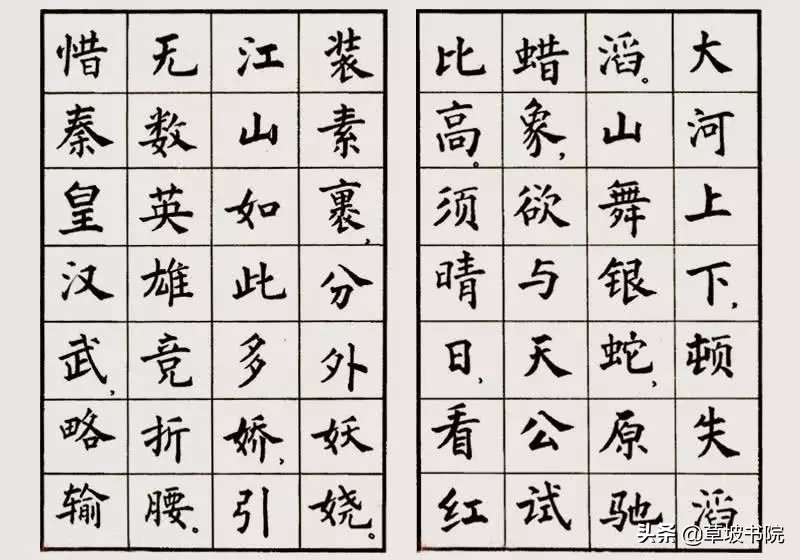 大河上下,顿失滔
滔。山舞银蛇,原驰
蜡象,欲与天公试
比高。须晴日,看红
装素裹,分外妖娆。
江山如此多娇,引
无数英雄竞折腰。
惜秦皇汉武,略输
头条 @草坡书院